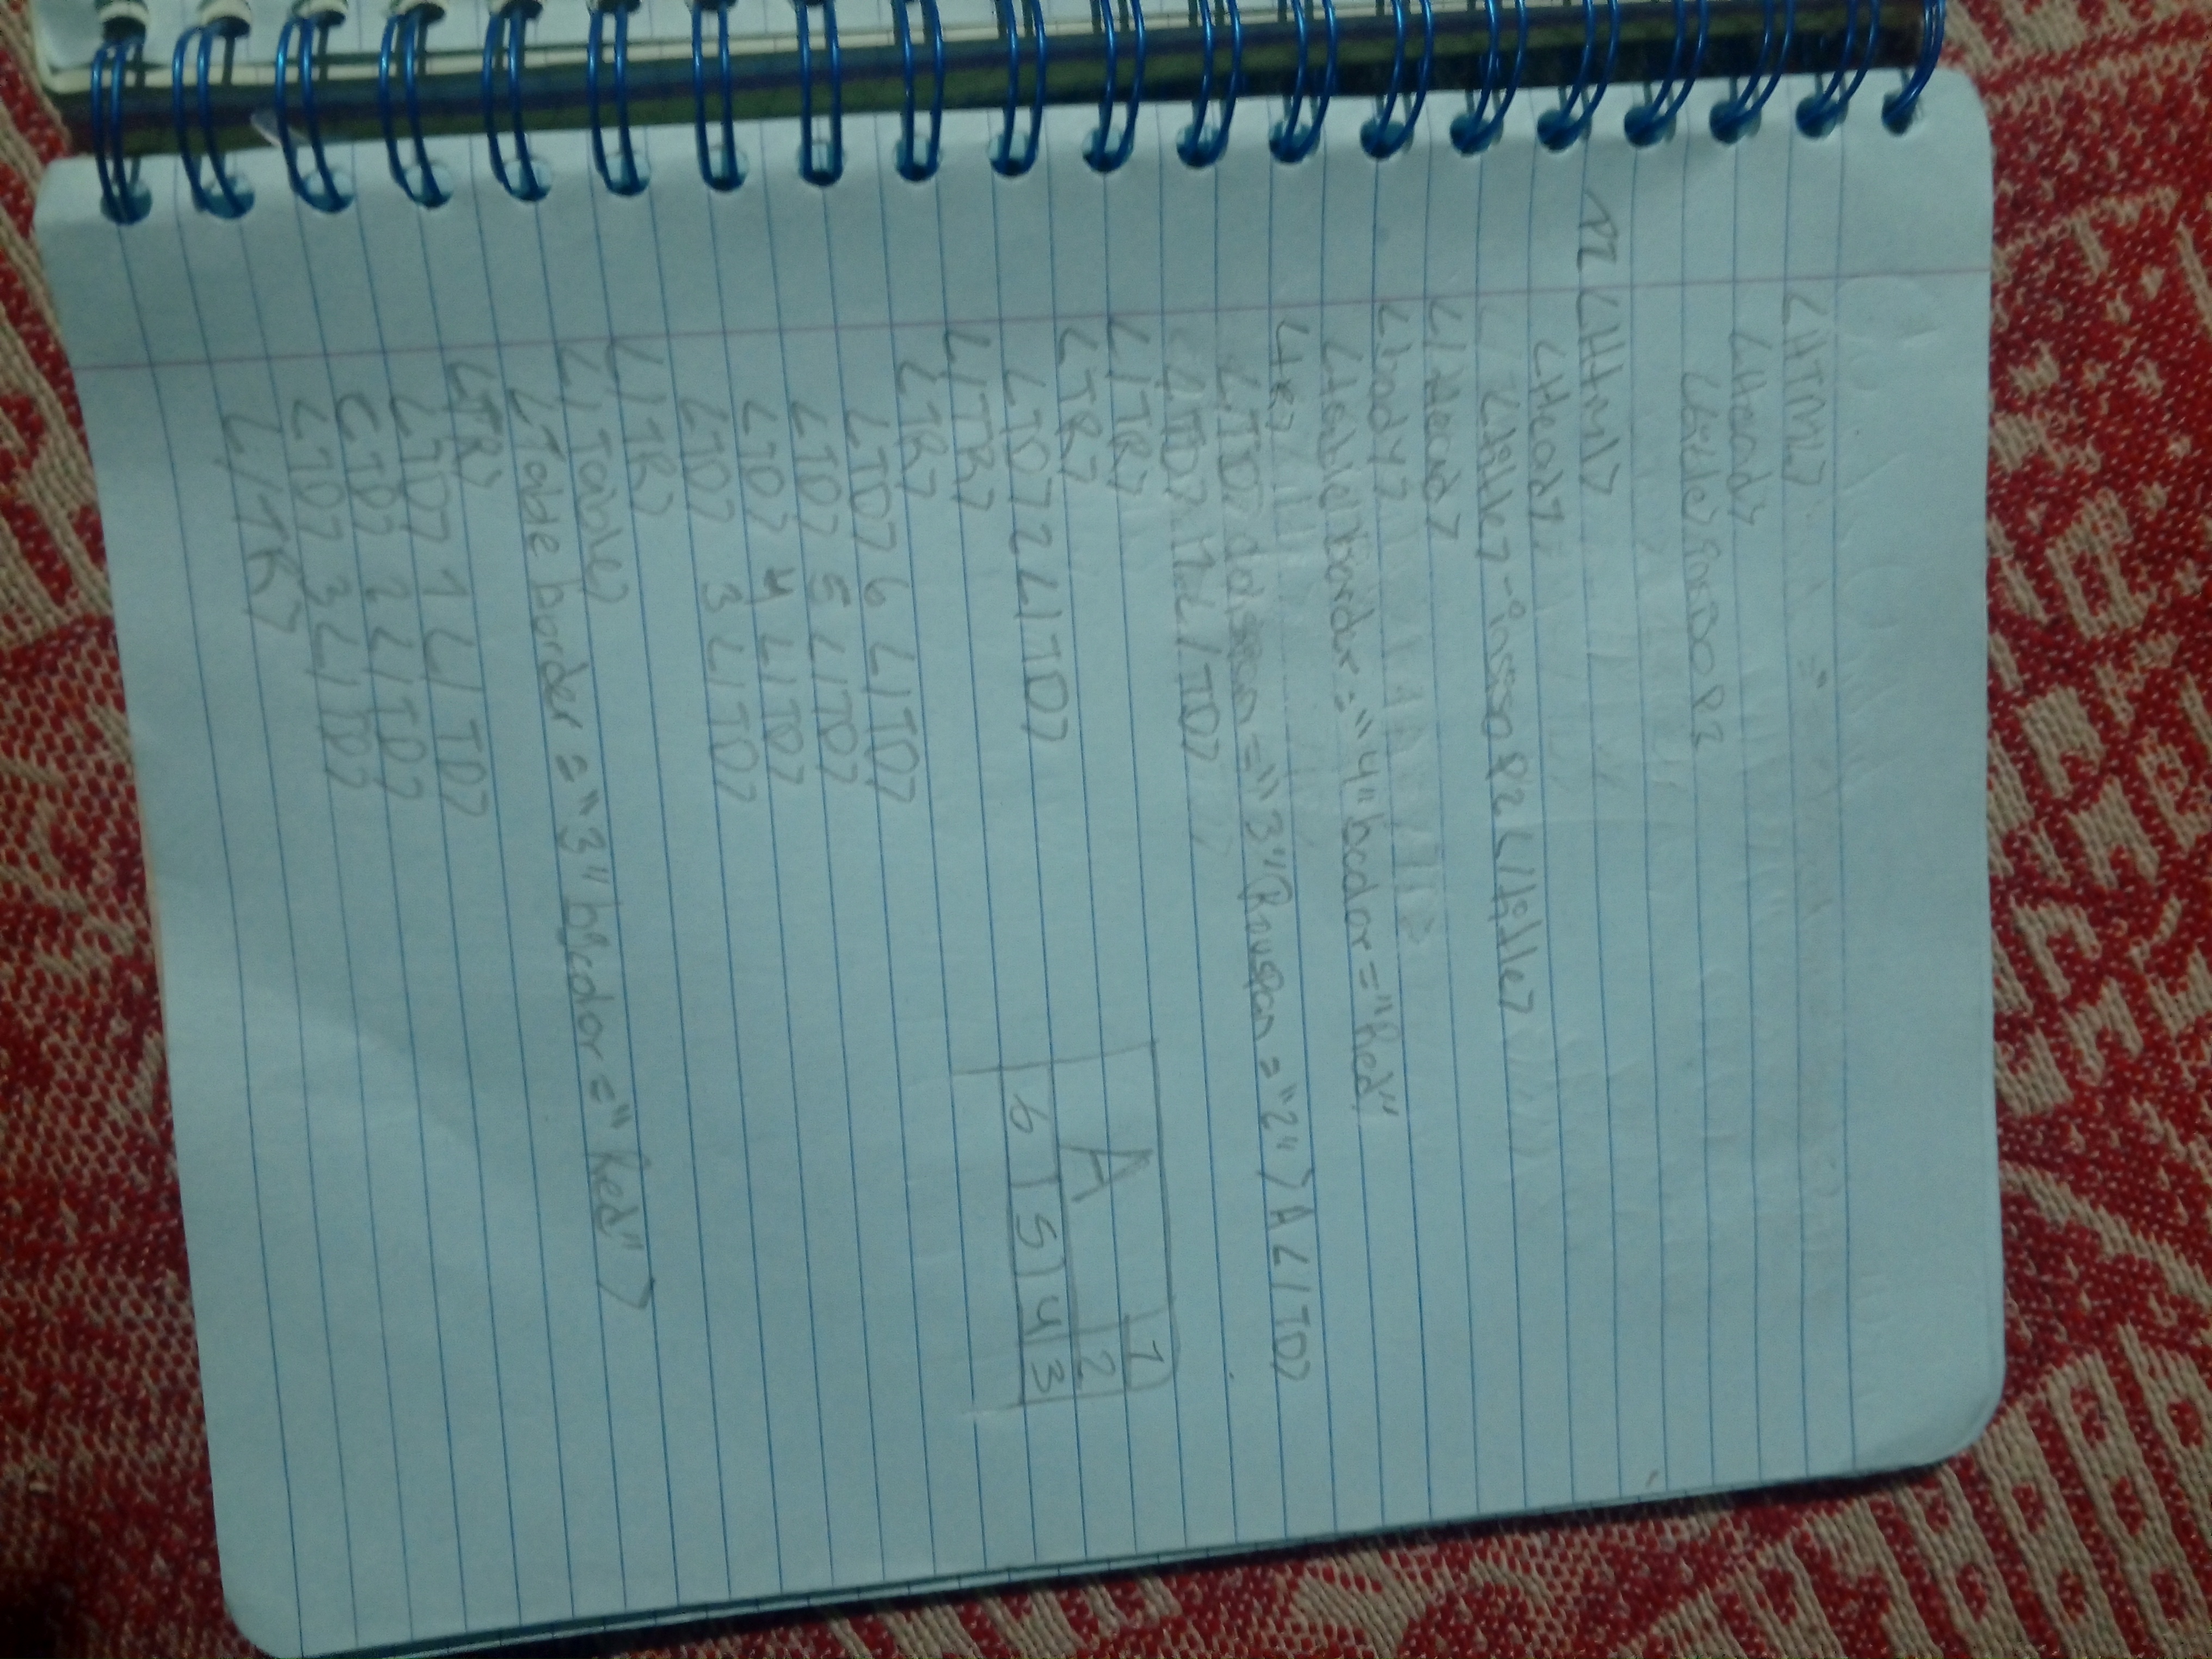 <HTML>
<Head>
<title>
12 <Html>
<Head>
<title> </title>
</Head>
<body>
<table border="4" bcdor="Red"
<TR>
<TD colspan="3" Rowspan="2">A</TD>
<TD>1</TD>
</TR>
<TR>
<TD>2</TD>
</TR>
<TR>
<TD>6</TD>
<TD>5</TD>
<TD>4</TD>
<TD>3</TD>
</TR>
</Table>
<Table border="3" bgcdor="Red">
<TR>
<TD>1</TD>
<TD>2</TD>
<TD>3</TD>
</TR>
A 1
2
6 5 4 3